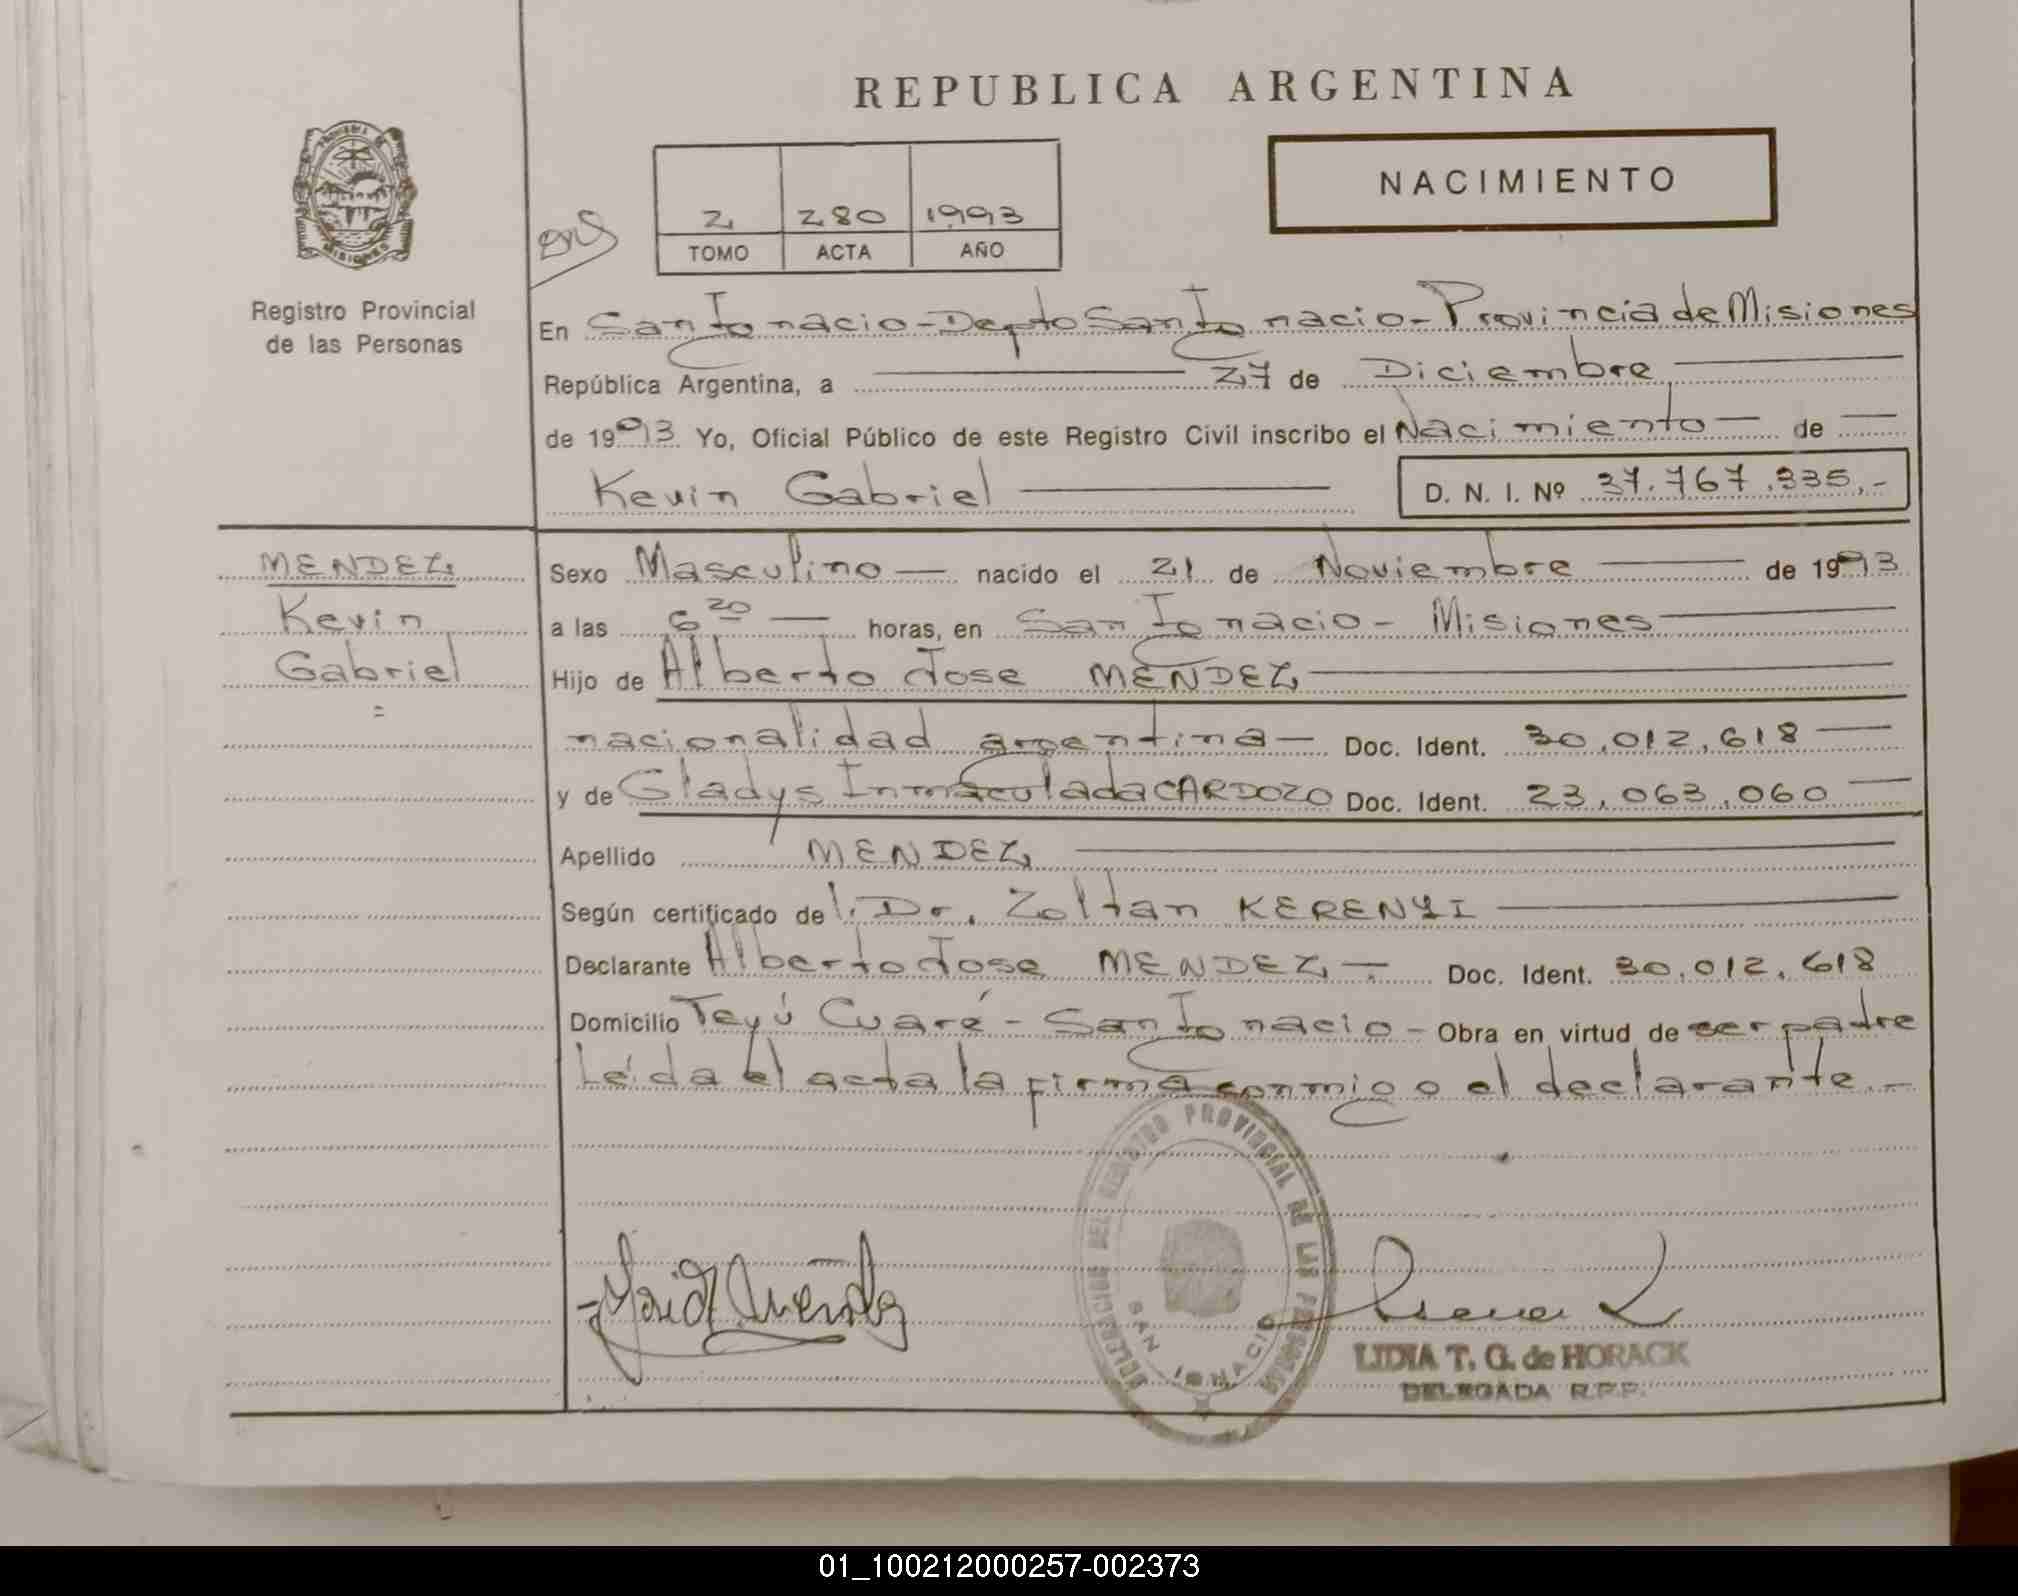 REPUBLICA ARGENTINA
NACIMIENTO
2 280 1993
TOMO ACTA AÑO
PROVINCIA DE MISIONES
Registro Provincial
de las Personas
En San Ignacio - Depto San Ignacio - Provincia de Misiones
República Argentina, a 27 de Diciembre
de 1993. Yo, Oficial Público de este Registro Civil inscribo el Nacimiento de
Kevin Gabriel D. N. I. Nº 37.767.335.-
MENDEZ
Kevin
Gabriel
=
Sexo Masculino nacido el 21 de Noviembre de 1993
a las 6 20 horas, en San Ignacio - Misiones
Hijo de Alberto Jose MENDEZ
nacionalidad argentina Doc. Ident. 30.012.618
y de Gladys Inmaculada CARDOZO Doc. Ident. 23.063.060
Apellido MENDEZ
Según certificado del Dr. Zoltan KERENYI
Declarante Alberto Jose MENDEZ Doc. Ident. 30.012.618
Domicilio Teyú Cuaré - San Ignacio - Obra en virtud de ser padre
Leída el acta la firma conmigo el declarante.-
DELEGACION DEL REGISTRO PROVINCIAL DE LAS PERSONAS
SAN IGNACIO
LIDIA T. G. de HORACK
DELEGADA R.P.P.
01_100212000257-002373